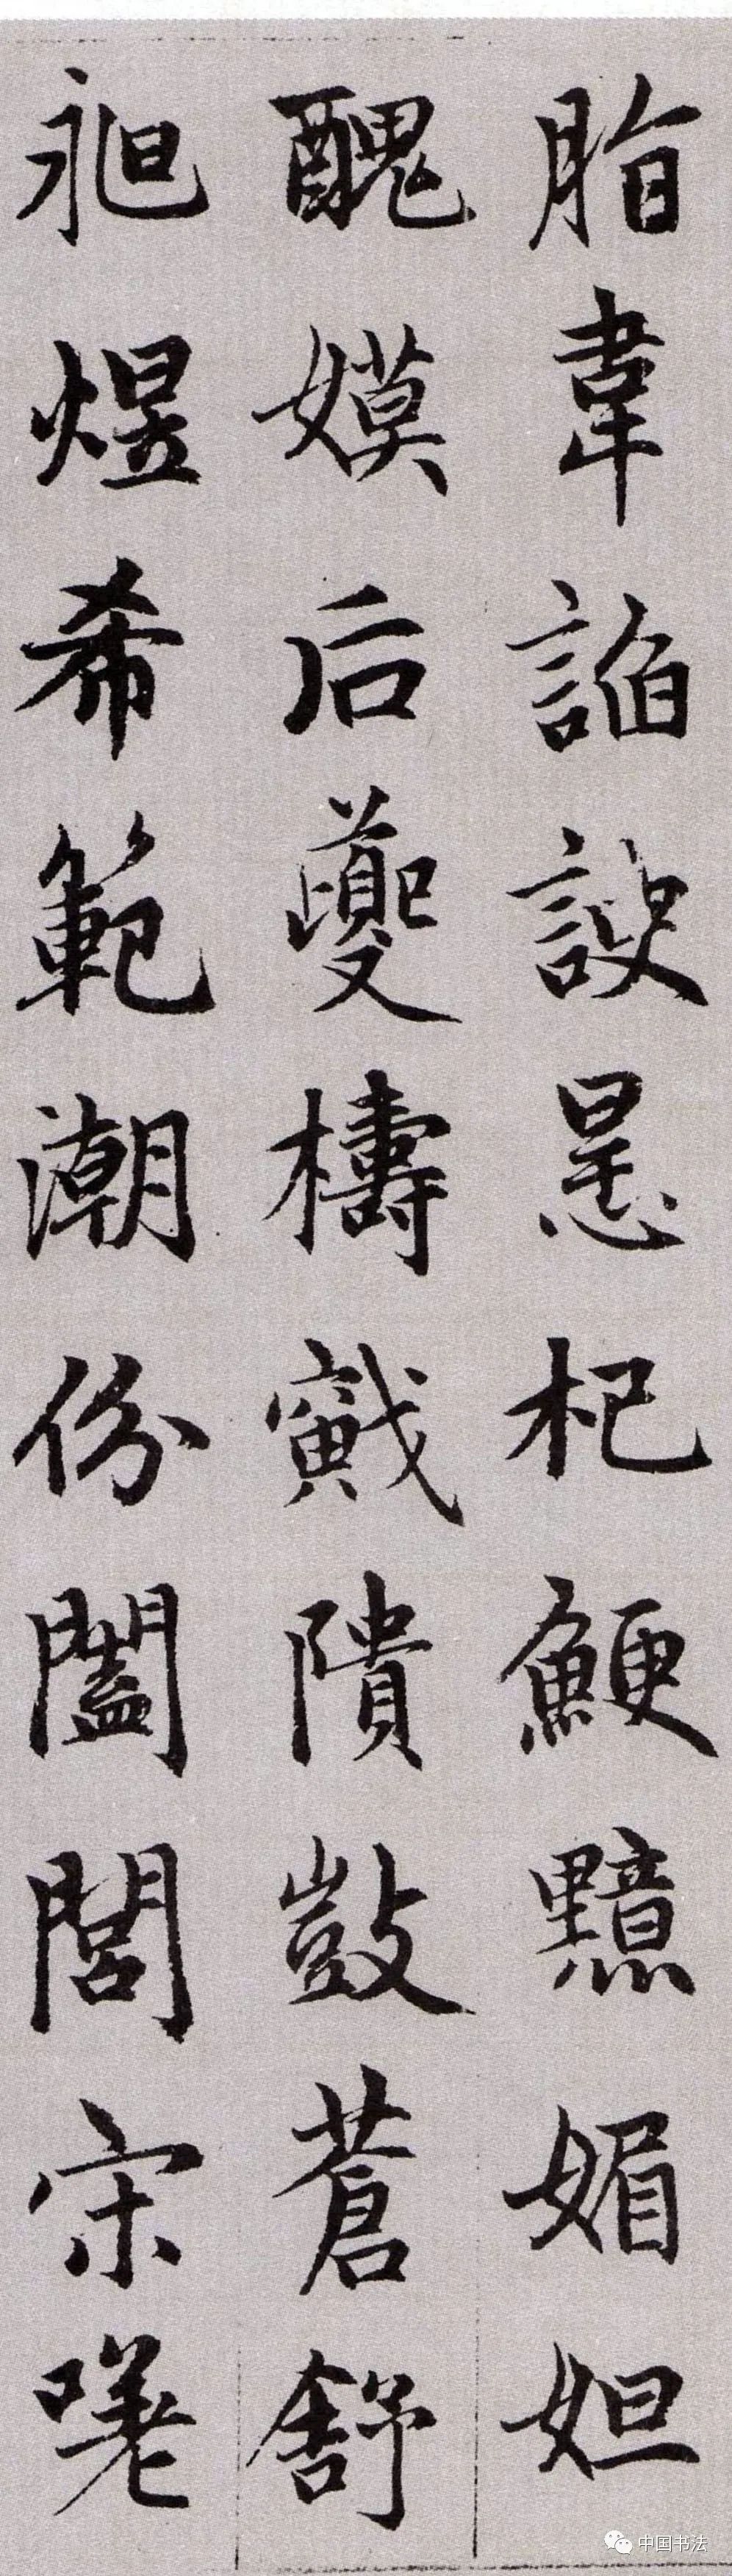 脂韋諂諛惎杞鯁黯媚妲
醜嫫后夔檮戭隤敳蒼舒
昶煜希範潮份闔閭宋
中国书法